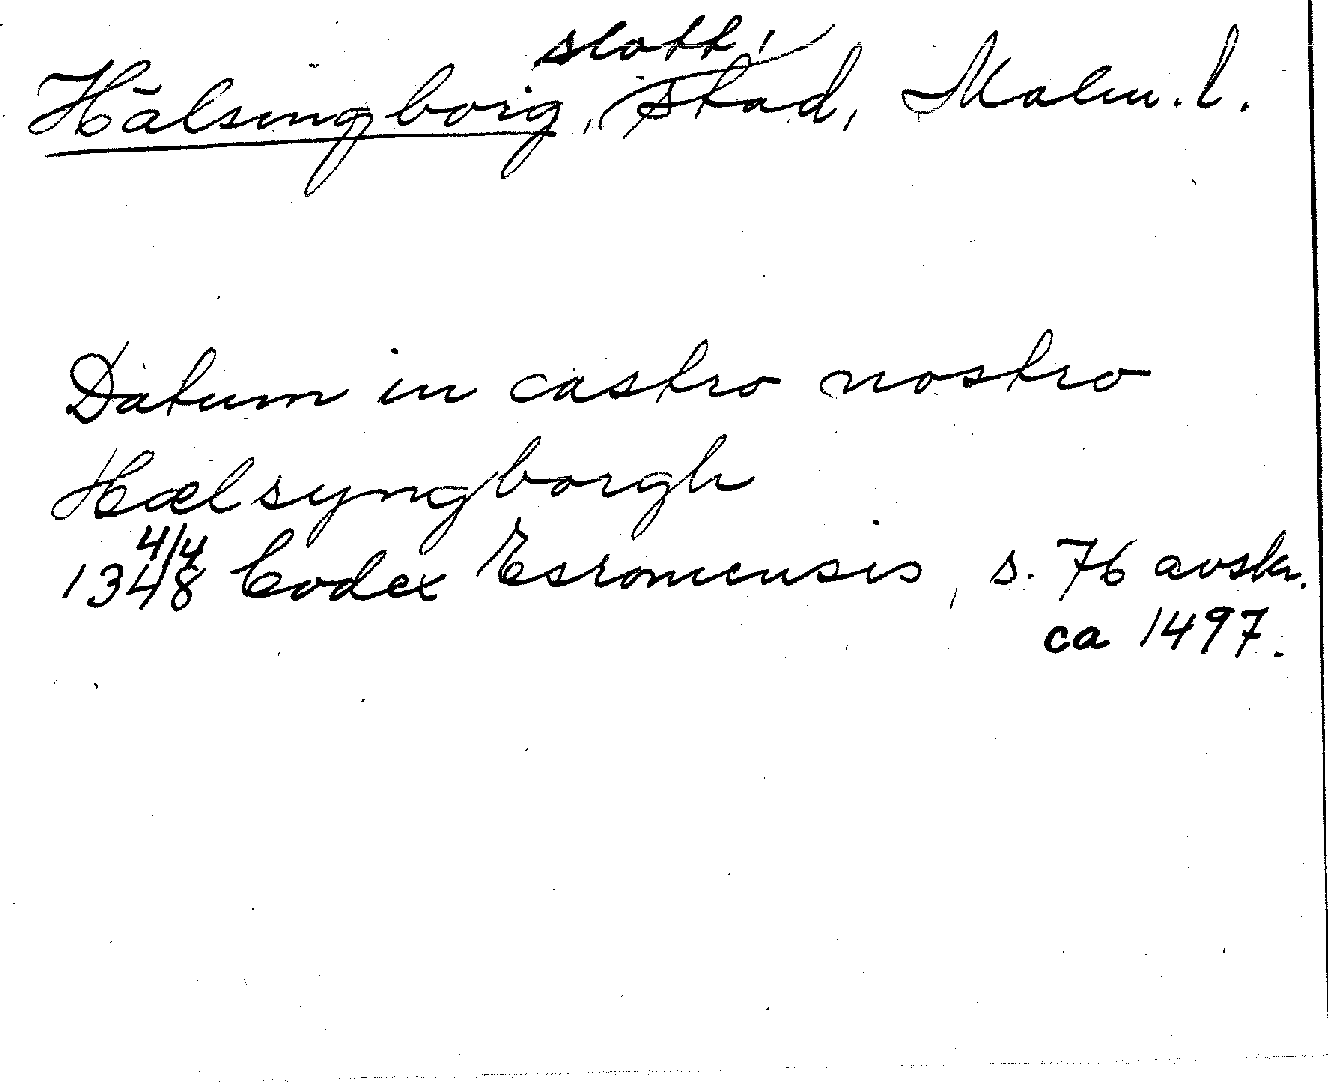 slott!
Hälsingborg, stad, Malm. l.
Datum in castro nostro
Hælsyngborgh
4/4
1348 Codex Esromensis, s. 76 avskr.
ca 1497.